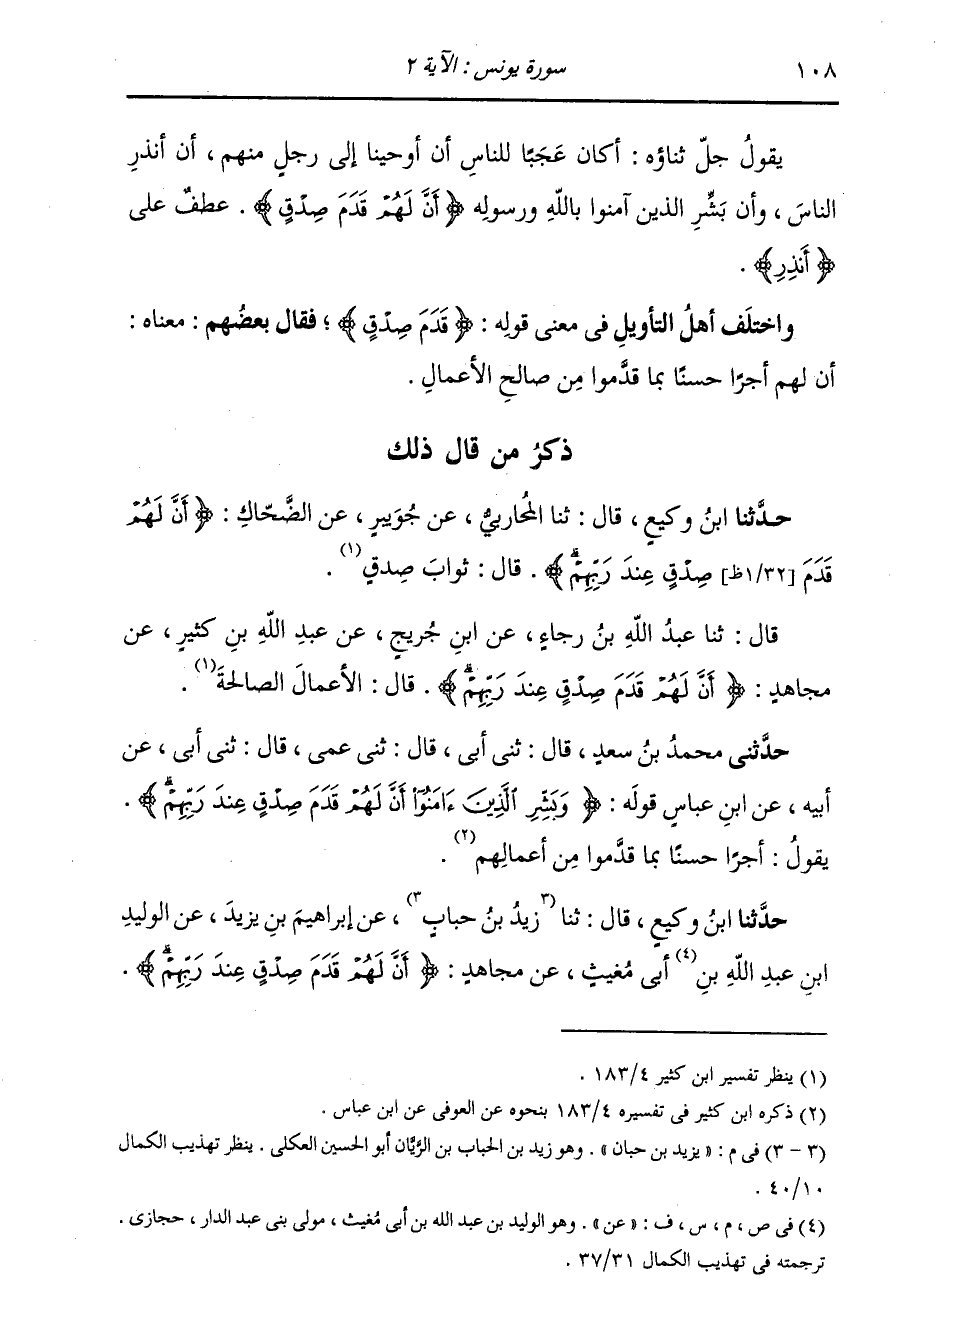 ١٠٨ سورة يونس : الآية ٢
يقولُ جلّ ثناؤه : أكان عَجَبًا للناسِ أن أوحينا إلى رجلٍ منهم ، أن أنذرِ
الناسَ ، وأن بَشِّرِ الذين آمنوا باللَّهِ ورسولِه ﴿ أَنَّ لَهُمْ قَدَمَ صِدْقٍ ﴾ . عطفٌ على
﴿ أَنذِرِ ﴾ .
واختلَف أهلُ التأويلِ فى معنى قولِه : ﴿ قَدَمَ صِدْقٍ ﴾ ؛ فقال بعضُهم : معناه :
أن لهم أجرًا حسنًا بما قدَّموا مِن صالحِ الأعمالِ .
ذكرُ من قال ذلك
حدَّثنا ابنُ وكيعٍ ، قال : ثنا المُحاربيُّ ، عن جُوَيبرٍ ، عن الضَّحّاكِ : ﴿ أَنَّ لَهُمْ
قَدَمَ [١/٣٢ظ] صِدْقٍ عِندَ رَبِّهِمْۗ ﴾ . قال : ثوابَ صِدقٍ(١) .
قال : ثنا عبدُ اللَّهِ بنُ رجاءٍ ، عن ابنِ جُريجٍ ، عن عبدِ اللَّهِ بنِ كثيرٍ ، عن
مجاهدٍ : ﴿ أَنَّ لَهُمْ قَدَمَ صِدْقٍ عِندَ رَبِّهِمْۗ ﴾ . قال : الأعمالَ الصالحةَ(١) .
حدَّثنى محمدُ بنُ سعدٍ ، قال : ثنى أبى ، قال : ثنى عمى ، قال : ثنى أبى ، عن
أبيه ، عن ابنِ عباسٍ قولَه : ﴿ وَبَشِّرِ ٱلَّذِينَ ءَامَنُوٓا۟ أَنَّ لَهُمْ قَدَمَ صِدْقٍ عِندَ رَبِّهِمْۗ ﴾ .
يقولُ : أجرًا حسنًا بما قدَّموا مِن أعمالِهم(٢) .
حدَّثنا ابنُ وكيعٍ ، قال : ثنا (٣زيدُ بنُ حبابٍ٣) ، عن إبراهيمَ بنِ يزيدَ ، عن الوليدِ
ابنِ عبدِ اللَّهِ بنِ(٤) أبى مُغيثٍ ، عن مجاهدٍ : ﴿ أَنَّ لَهُمْ قَدَمَ صِدْقٍ عِندَ رَبِّهِمْۗ ﴾ .
(١) ينظر تفسير ابن كثير ١٨٣/٤ .
(٢) ذكره ابن كثير فى تفسيره ١٨٣/٤ بنحوه عن العوفى عن ابن عباس .
(٣ - ٣) فى م : « يزيد بن حبان » . وهو زيد بن الحباب بن الرَّيَّان أبو الحسين العكلى . ينظر تهذيب الكمال
٤٠/١٠ .
(٤) فى ص ، م ، س ، ف : « عن » . وهو الوليد بن عبد الله بن أبى مُغيث ، مولى بنى عبد الدار ، حجازى .
ترجمته فى تهذيب الكمال ٣٧/٣١ .